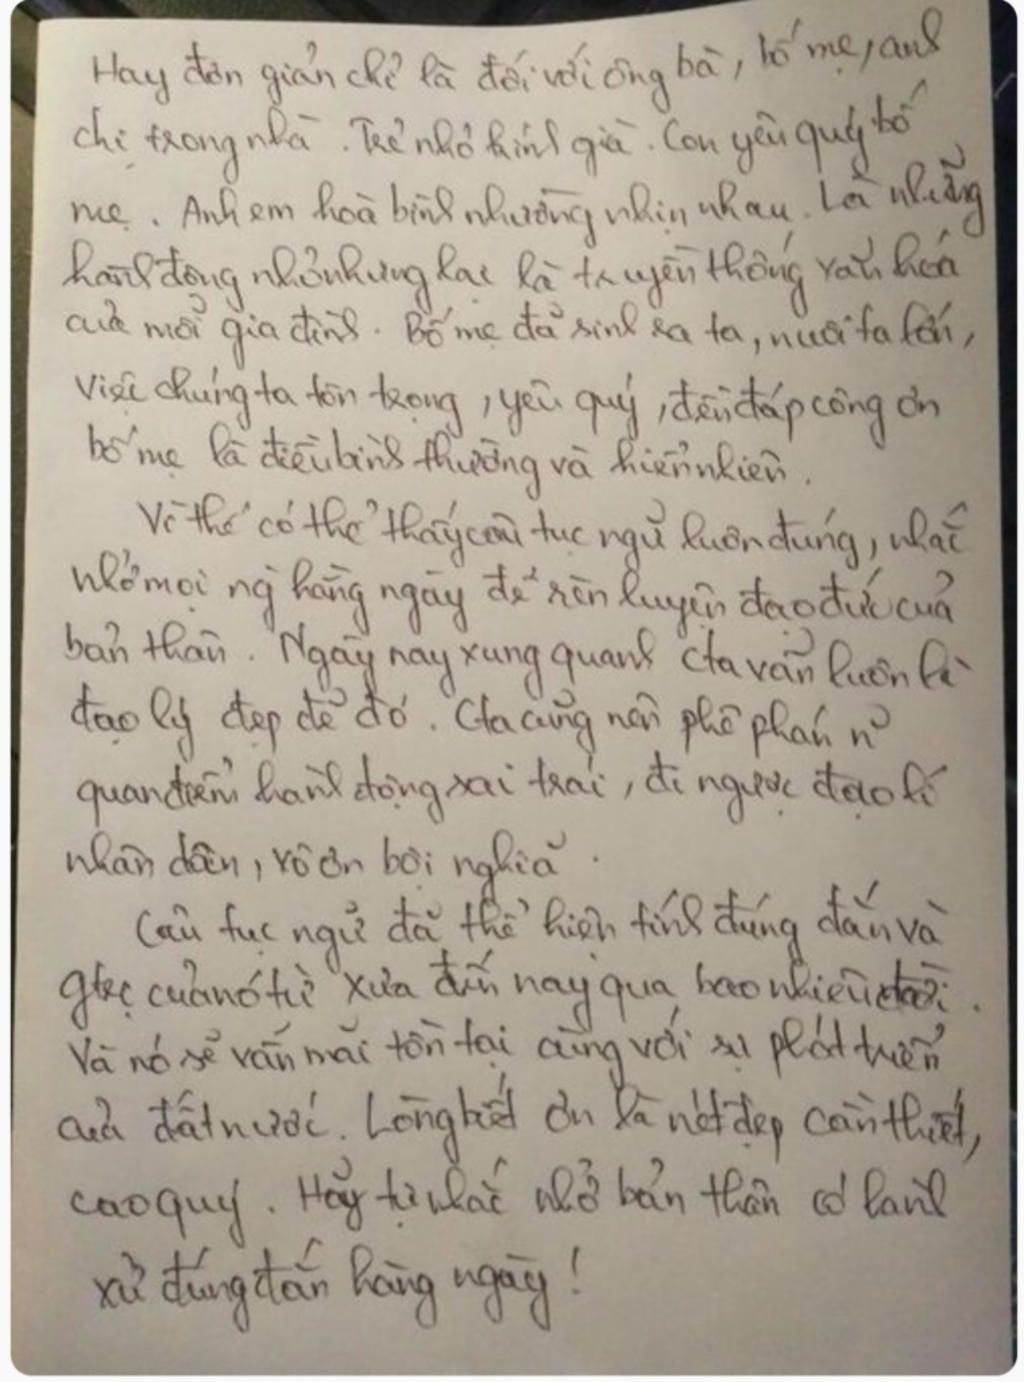 Hay đơn giản chỉ là đối với ông bà, bố mẹ, anh
chị trong nhà. Trẻ nhỏ kính già. Con yêu quý bố
mẹ. Anh em hoà bình nhường nhịn nhau. Là những
hành động nhỏ nhưng lại là truyền thống văn hoá
của mỗi gia đình. Bố mẹ đã sinh ra ta, nuôi ta lớn,
việc chúng ta tôn trọng, yêu quý, đền đáp công ơn
bố mẹ là điều bình thường và hiển nhiên.
Vì thế có thể thấy câu tục ngữ luôn đúng, nhắc
nhở mọi ng hằng ngày để rèn luyện đạo đức của
bản thân. Ngày nay xung quanh cta vẫn luôn là
đạo lý đẹp đẽ đó. Cta cũng nên phê phán n~
quan điểm hành động sai trái, đi ngược đạo lí
nhân dân, vô ơn bội nghĩa.
Câu tục ngữ đã thể hiện tính đúng đắn và
của nó từ xưa đến nay qua bao nhiêu đời.
Và nó sẽ vẫn mãi tồn tại cùng với sự phát triển
của đất nước. Lòng biết ơn là nét đẹp cần thiết,
cao quý. Hãy tự nhắc nhở bản thân có hành
xử đúng đắn hàng ngày!